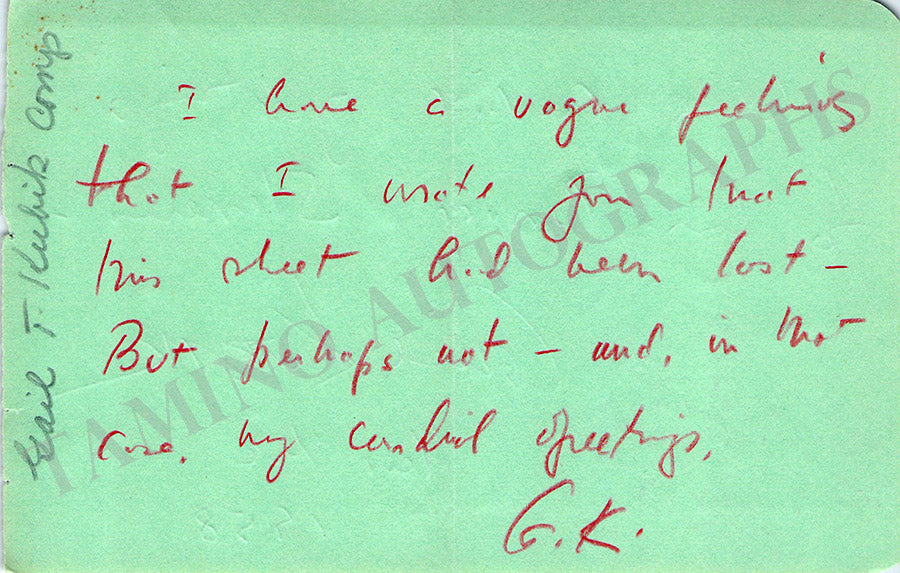 I have a vague feeling
that I wrote you that
this sheet had been lost –
But perhaps not – and, in that
case, my cordial greetings,
G.K.
Gail T. Kubik Comp
TAMINO AUTOGRAPHS